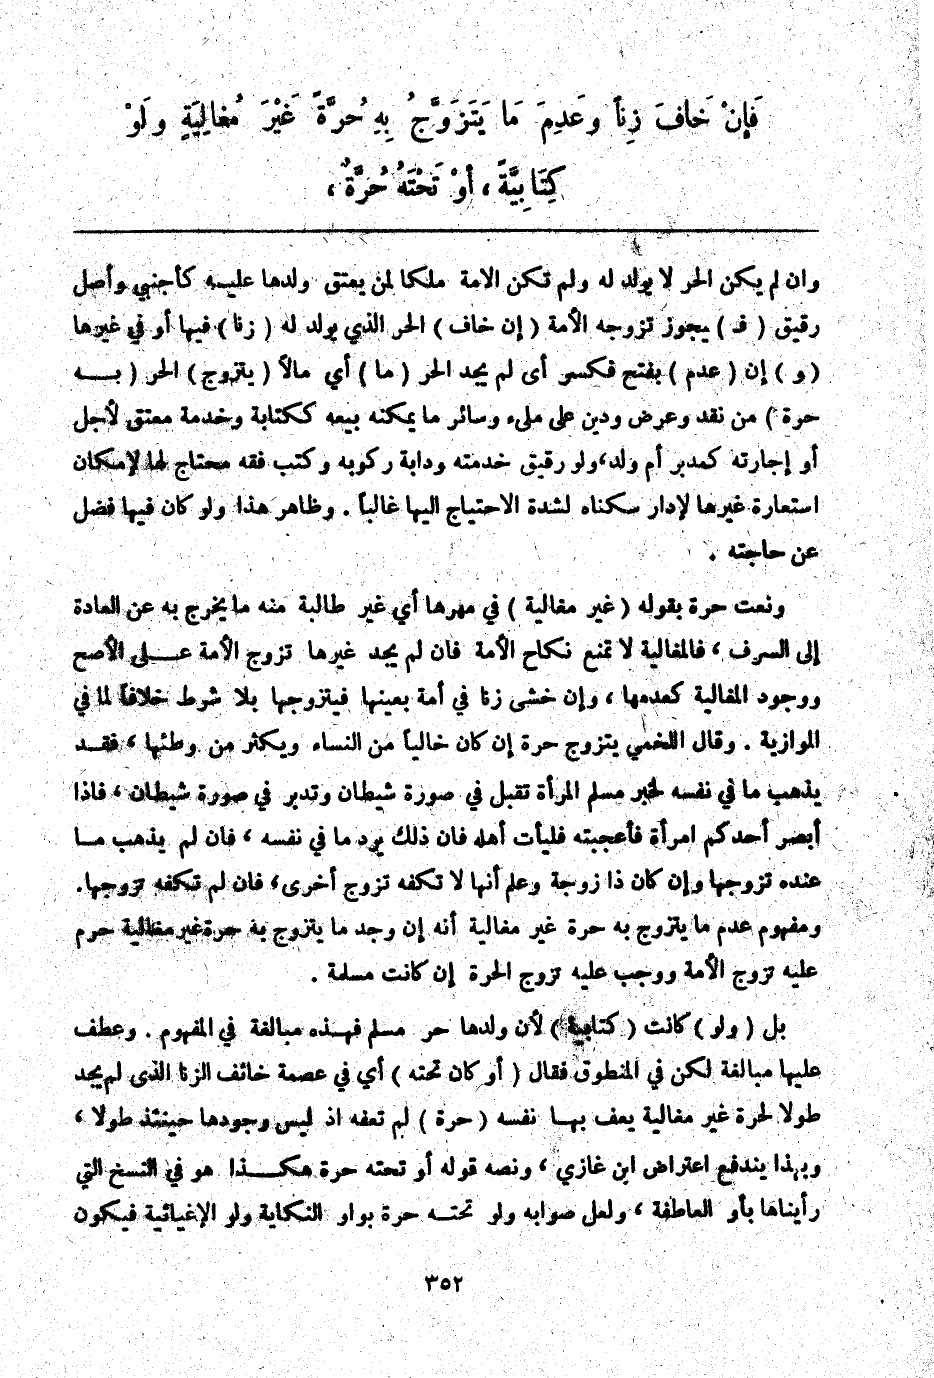 فَإِنْ خَافَ زِناً وعَدِمَ مَا يَتَزَوَّجُ بِهِ حُرَّةً غَيْرَ مُغالِيَةٍ ولَوْ
كِتَابِيَّةً ، أوْ تَحْتَهُ حُرَّةٌ ،
وان لم يكن الحر لا يولد له ولم تكن الامة ملكا لمن يعتق ولدها عليه كأجنبي وأصل
رقيق ( فـ ) يجوز تزوجه الأمة ( إن خاف ) الحر الذي يولد له ( زنا ) فيها أو في غيرها
( و ) إن ( عدم ) بفتح فكسر أى لم يجد الحر ( ما ) أي مالاً ( يتزوج ) الحر ( بــه
حرة ) من نقد وعرض ودين على ملىء وسائر ما يمكنه بيعه ككتابة وخدمة معتق لأجل
أو إجارته كمدبر أم ولد،ولو رقيق خدمته ودابة ركوبه وكتب فقه محتاج لها لإمكان
استعارة غيرها لإدار سكناه لشدة الاحتياج اليها غالباً . وظاهر هذا ولو كان فيها فضل
عن حاجته .
ونعت حرة بقوله ( غير مغالية ) في مهرها أي غير طالبة منه ما يخرج به عن العادة
إلى السرف ، فالمغالية لا تمنع نكاح الأمة فان لم يجد غيرها تزوج الأمة عــلى الأصح
ووجود المغالية كعدمها ، وإن خشى زنا في أمة بعينها فيتزوجها بلا شرط خلافاً لما في
الموازية . وقال اللخمي يتزوج حرة إن كان خالياً من النساء ويكثر من وطئها ، فقــد
يذهب ما في نفسه لخبر مسلم المرأة تقبل في صورة شيطان وتدبر في صورة شيطان ، فاذا
أبصر أحدكم امرأة فأعجبته فليأت أهله فان ذلك يرد ما في نفسه ، فان لم يذهب مــا
عنده تزوجها وإن كان ذا زوجة وعلم أنها لا تكفه تزوج أخرى، فان لم تكفه تزوجها.
ومفهوم عدم ما يتزوج به حرة غير مغالية أنه إن وجد ما يتزوج به حرة غير مغالية حرم
عليه تزوج الأمة ووجب عليه تزوج الحرة إن كانت مسلمة .
بل ( ولو ) كانت ( كتابية ) لأن ولدها حر مسلم فهــذه مبالغة في المفهوم . وعطف
عليها مبالغة لكن في المنطوق فقال ( أو كان تحته ) أي في عصمة خائف الزنا الذى لم يجد
طولا لحرة غير مغالية يعف بهــا نفسه ( حرة ) لم تعفه اذ ليس وجودها حينئذ طولا ،
وبهذا يندفع اعتراض ابن غازي ، ونصه قوله أو تحته حرة هكــذا هو في النسخ التي
رأيناها بأو العاطفة ، ولعل صوابه ولو تحتــه حرة بواو النكاية ولو الإغيائية فيكون
٣٥٢